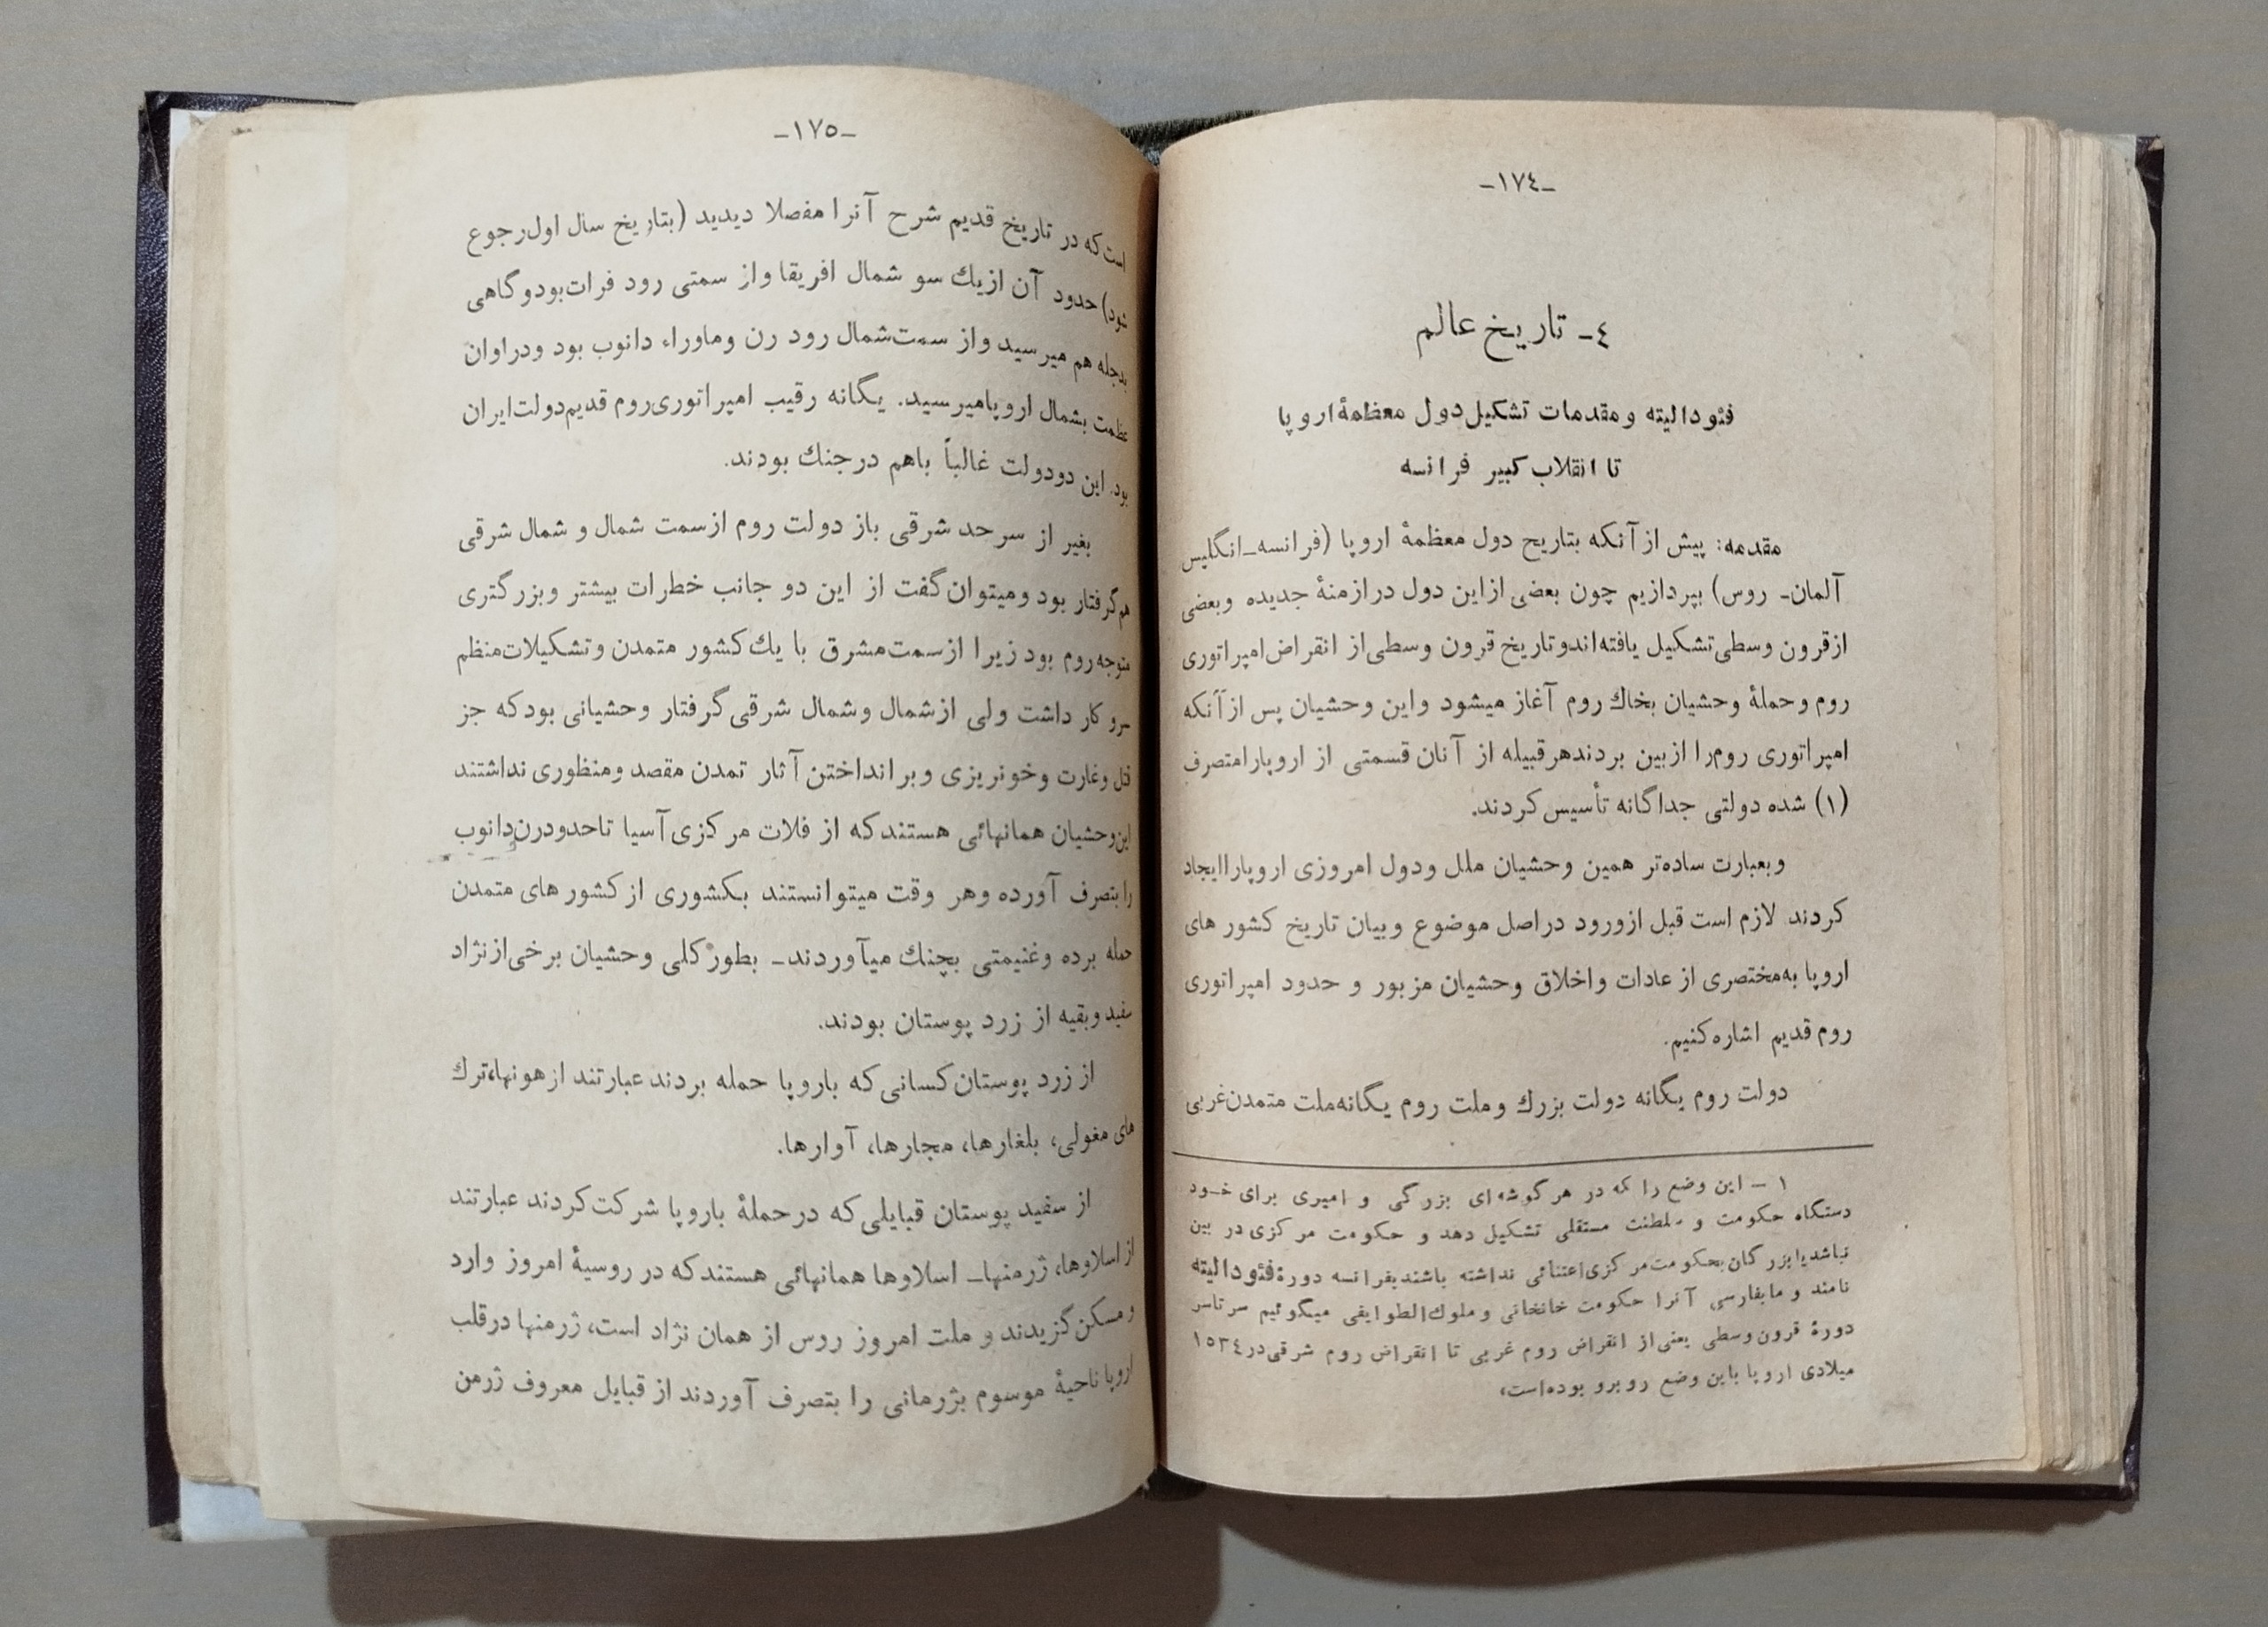 -١٧٤-
٤- تاریخ عالم
فئودالیته و مقدمات تشکیل دول معظمهٔ اروپا
تا انقلاب کبیر فرانسه
مقدمه: پیش از آنکه بتاریح دول معظمهٔ اروپا (فرانسه-انگلیس
آلمان- روس) بپردازیم چون بعضی از این دول در ازمنهٔ جدیده وبعضی
از قرون وسطی تشکیل یافته‌اند و تاریخ قرون وسطی از انقراض امپراتوری
روم وحملهٔ وحشیان بخاك روم آغاز میشود واین وحشیان پس از آنکه
امپراتوری روم را از بین بردند هر قبیله از آنان قسمتی از اروپا را متصرف
(١) شده دولتی جداگانه تأسیس کردند.
وبعبارت ساده‌تر همین وحشیان ملل ودول امروزی اروپا را ایجاد
کردند لازم است قبل از ورود در اصل موضوع وبیان تاریخ کشور های
اروپا به‌مختصری از عادات واخلاق وحشیان مزبور و حدود امپراتوری
روم قدیم اشاره کنیم.
دولت روم یگانه دولت بزرك وملت روم یگانه ملت متمدن غربی
١ - این وضع را که در هر گوشه ای بزرگی و امیری برای خود
دستگاه حکومت و سلطنت مستقلی تشکیل دهد و حکومت مرکزی در بین
نباشد یا بزرگان بحکومت مرکزی اعتنائی نداشته باشند بفرانسه دورهٔ فئودالیته
نامند و ما بفارسی آنرا حکومت خانخانی وملوك الطوایفی میگوئیم سرتاسر
دورهٔ قرون وسطی یعنی از انقراض روم غربی تا انقراض روم شرقی در ١٥٣٤
میلادی اروپا باین وضع روبرو بوده است،
-١٧٥-
است که در تاریخ قدیم شرح آنرا مفصلا دیدید (بتاریخ سال اول رجوع
شود) حدود آن از یك سو شمال افریقا واز سمتی رود فرات بود و گاهی
بدجله هم میرسید واز سمت شمال رود رن وماوراء دانوب بود ودر اوان
عظمت بشمال اروپا میرسید. یگانه رقیب امپراتوری روم قدیم دولت ایران
بود. این دو دولت غالباً باهم در جنك بودند.
بغیر از سرحد شرقی باز دولت روم از سمت شمال و شمال شرقی
هم گرفتار بود ومیتوان گفت از این دو جانب خطرات بیشتر وبزرگتری
متوجه روم بود زیرا از سمت مشرق با یك کشور متمدن وتشکیلات منظم
سرو کار داشت ولی از شمال وشمال شرقی گرفتار وحشیانی بود که جز
قتل وغارت وخونریزی وبرانداختن آثار تمدن مقصد ومنظوری نداشتند
این وحشیان همانهائی هستند که از فلات مرکزی آسیا تا حدود رن دانوب
را بتصرف آورده وهر وقت میتوانستند بکشوری از کشور های متمدن
حمله برده وغنیمتی بچنك میآوردند- بطور کلی وحشیان برخی از نژاد
سفید وبقیه از زرد پوستان بودند.
از زرد پوستان کسانی که باروپا حمله بردند عبارتند از هونها، ترك
های مغولی، بلغارها، مجارها، آوارها.
از سفید پوستان قبایلی که در حملهٔ باروپا شرکت کردند عبارتند
از اسلاوها، ژرمنها- اسلاوها همانهائی هستند که در روسیهٔ امروز وارد
و مسکن گزیدند و ملت امروز روس از همان نژاد است، ژرمنها در قلب
اروپا ناحیهٔ موسوم بژرمانی را بتصرف آوردند از قبایل معروف ژرمن